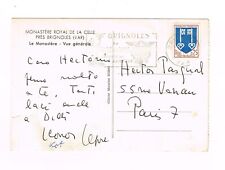 MONASTÈRE ROYAL DE LA CELLE
PRÈS BRIGNOLES (VAR)
Le Monastère - Vue générale
BRIGNOLES
Caro Hectorino
penso molto
a te, Tanti
baci anche
a Didi
Leonor
Hector Pascual
55 rue Vaneau
Paris 7